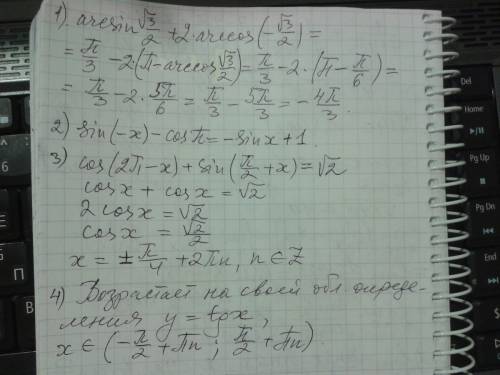 1). arcsin √3/2 + 2·arccos(-√3/2) =
= π/3 - 2·(π - arccos √3/2) = π/3 - 2·(π - π/6) =
= π/3 - 2·5π/6 = π/3 - 5π/3 = -4π/3.
2) sin(-x) - cosπ = -sinx + 1.
3) cos(2π - x) + sin(π/2 + x) = √2
cosx + cosx = √2
2cosx = √2
cosx = √2/2
x = ± π/4 + 2πn, n ∈ Z
4) Возрастает на своей обл опреде-
ления y = tgx,
x ∈ (-π/2 + πn ; π/2 + πn)
Del
Home
Pg Up
Pg Dn
End